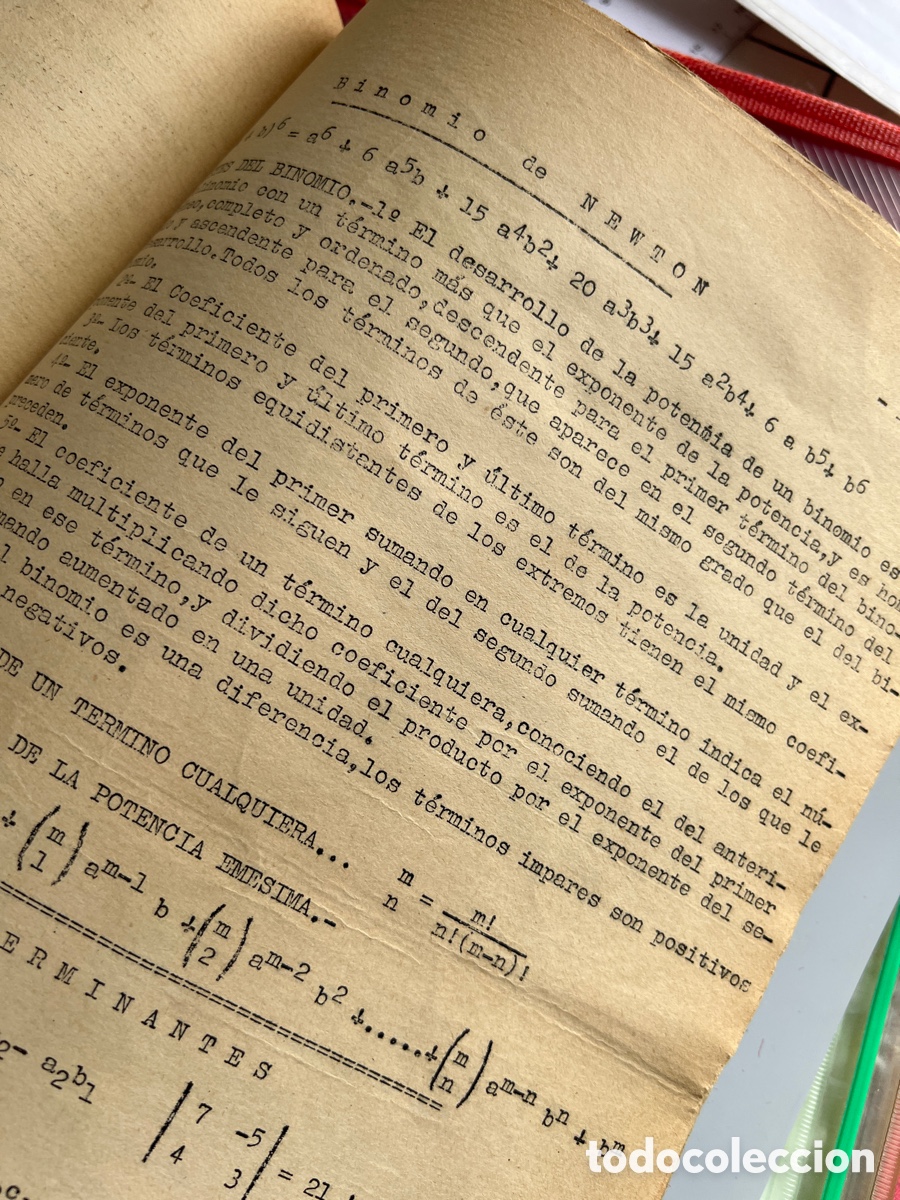 Binomio de NEWTON
b)6 = a6 + 6 a5b + 15 a4b2+ 20 a3b3+ 15 a2b4+ 6 a b5+ b6
DEL BINOMIO.-1º El desarrollo de la potencia de un binomio es
binomio con un término más que el exponente de la potencia,y es
completo y ordenado,descendente para el primer término del bino-
y ascendente para el segundo,que aparece en el segundo término del
desarrollo.Todos los términos de éste son del mismo grado que el del bi-
El Coeficiente del primero y último término es la unidad y el ex-
del primero y último término es el de la potencia.
3a- Los términos equidistantes de los extremos tienen el mismo coefi-
4a- El exponente del primer sumando en cualquier término índica el nú-
mero de términos que le siguen y el del segundo sumando el de los que le
preceden.
5a- El coeficiente de un término cualquiera,conociendo el del anteri-
halla multiplicando dicho coeficiente por el exponente del primer
en ese término,y dividiendo el producto por el exponente del se-
aumentado en una unidad.
binomio es una diferencia,los términos impares son positivos
negativos.
DE UN TERMINO CUALQUIERA... m n = m! n!(m-n)!
DE LA POTENCIA EMESIMA.-
+ (m 1) am-1 b + (m 2) am-2 b2 +......+ (m n) am-n bn + bm
ERMINANTES
2- a2b1 | 7 -5 |
| 4 3 | = 21
todocoleccion